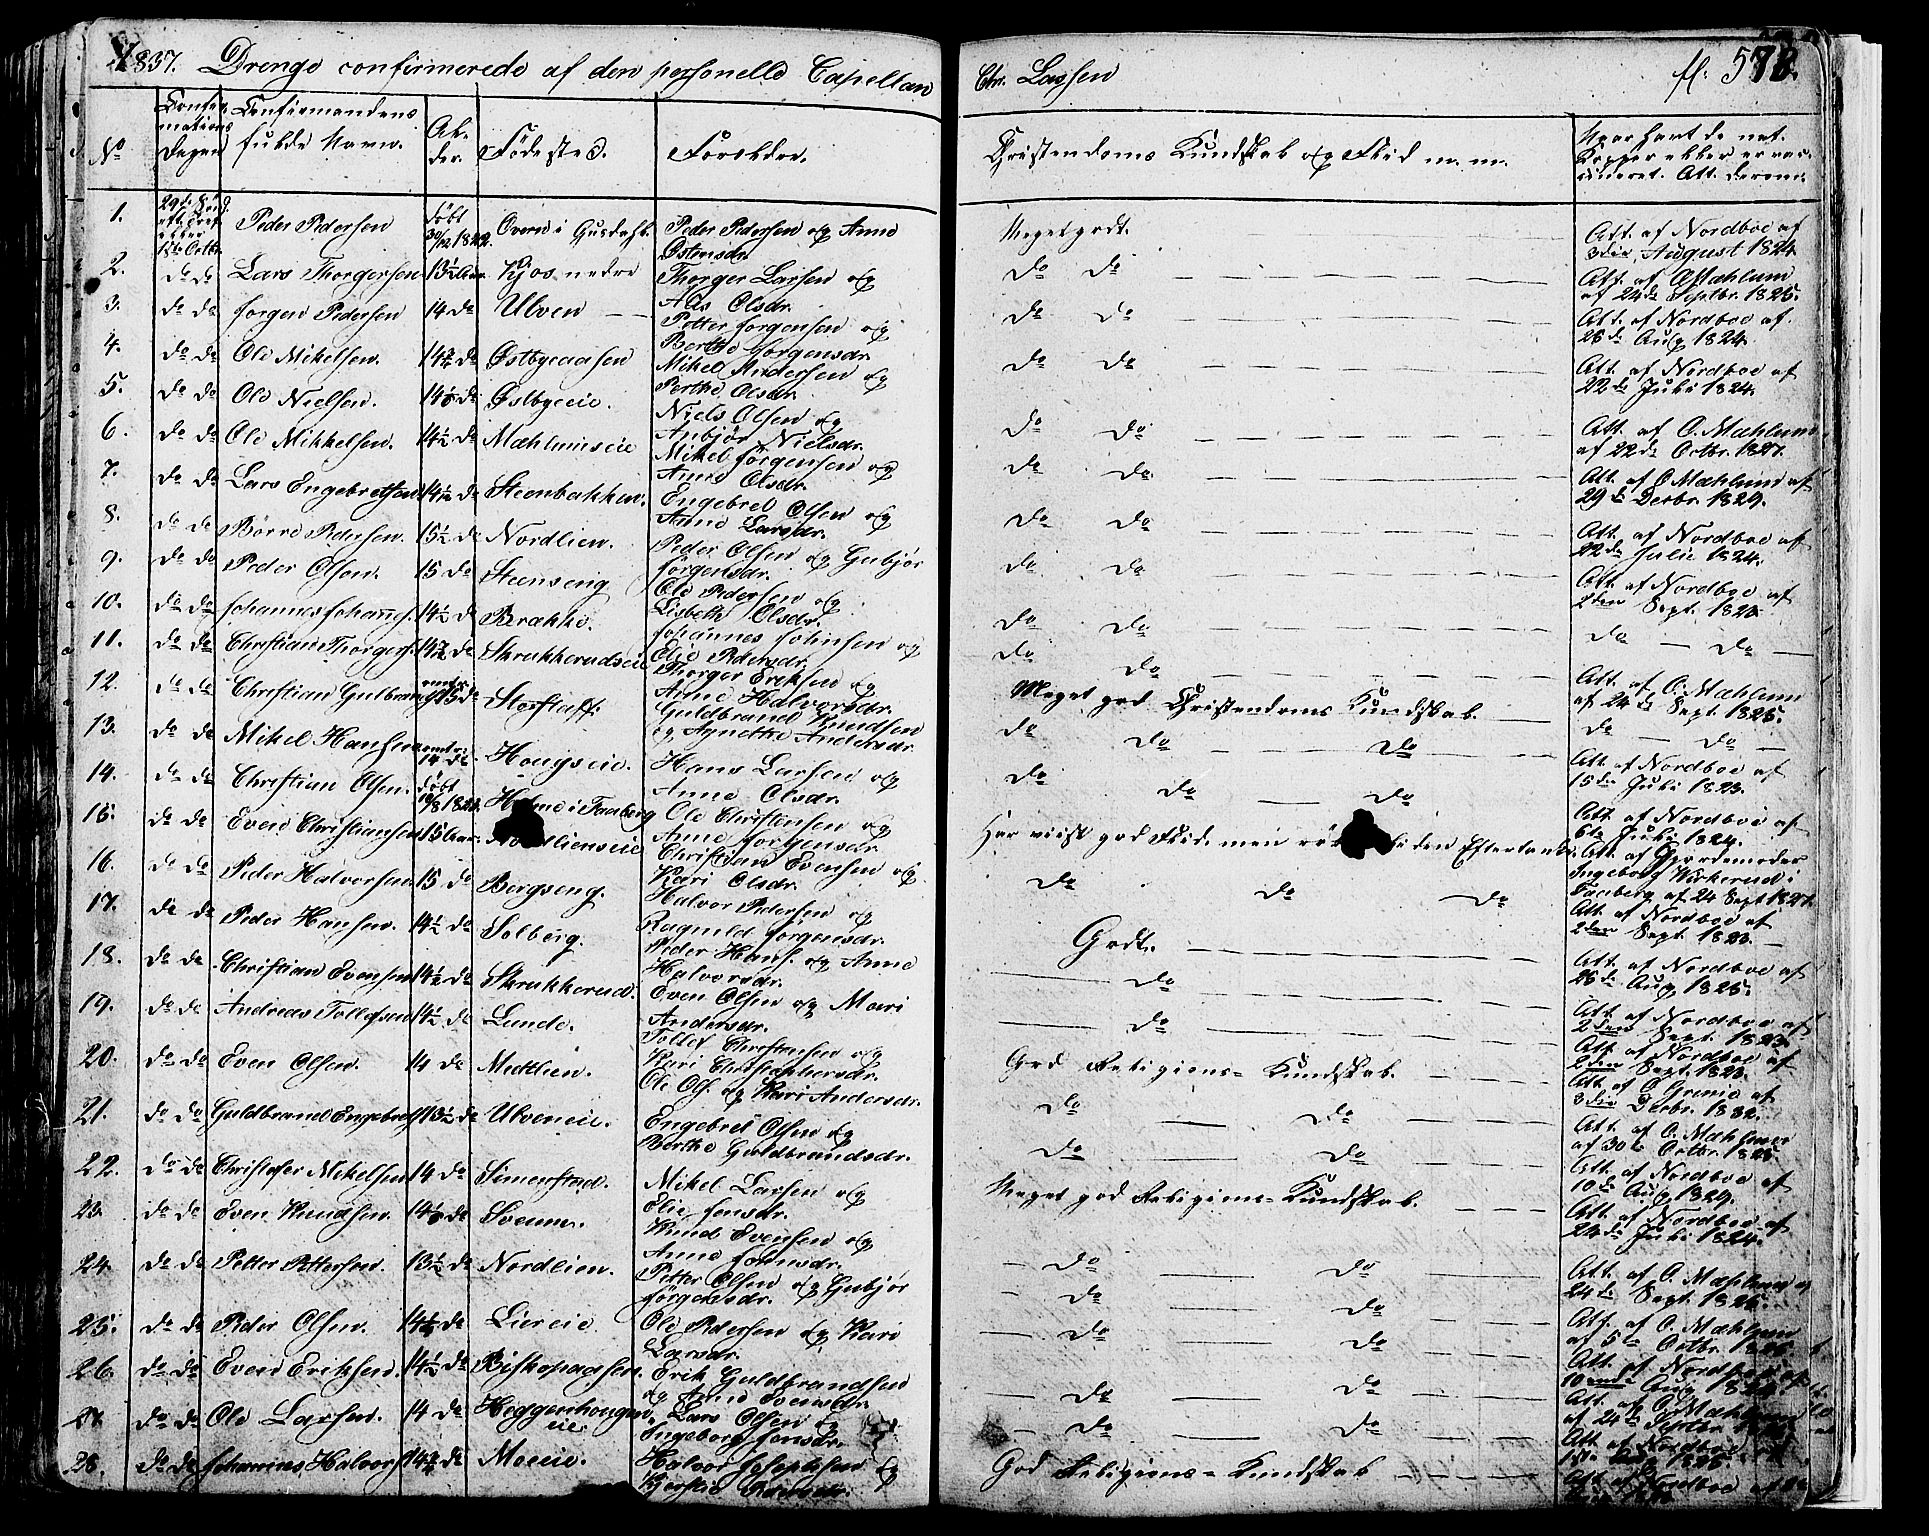 1837. Drenge confirmerede af den personelle Capellan Chr. Lassen fl. 578.
No
Confirmations Dagen
Confirmandens fulde Navn.
Alder.
Fødested.
Forældre.
Christendoms Kundskab og Flid m. m.
1. Peder Pedersen født 30/12 1822. Peder Pedersen og Anne Østensdr. Meget godt. Att. af Nordboe af 3die August 1824
2. do do Lars Thorgersen 13½ Aar. Kjos nedre Thorger Larsen og Olsdr. do do Att. af 24de Septbr. 1825.
3. do do Jørgen Pedersen 14 do Ulven Petter Jørgensen og Berthe Jørgensdr. do do Att. af Nordboe af 26de Aug 1824.
4. do do Ole Mikelsen. 14¾ do Østbyeaasen Mikel Andersen og Berthe Olsdr. do do Att. af Nordboe af 22de Juli 1824.
5. do do Ole Nielsen. do Østbyeeie. Niels Olsen og Anbjør Nielsdr. do do Att. af O. Mæhlum af 22de Octbr. 1827.
6. do do Ole Mikkelsen. 14½ do Mæhlumseie Mikel Jørgensen og Anne Olsdr. do do Att. af O. Mæhlum af 29de Decbr. 1824.
7. do do Lars Engebretsen do Steenbakken. Engebret Olsen og Anne Larsdr. do do Att. af Nordboe af 22de Julie 1824.
8. do do Børre Pedersen. 15½ do Nordlien. Peder Olsen og Gubjør Jørgensdr. do do Att. af Nordboe af 2den Sept. 1823.
9. do do Peder Olsen. 15 do Steenseng Ole Pedersen og Lisbeth Olsdr. do do do do
10. do do Johannes Johannes. 14½ do Brække. Johannes Johnsen og Elie Pedersdr. do do Att. af O. Mæhlum af 24de Sept. 1825.
11. do do Christian Thorgers. 14¾ do Skrukkerudseie Thorger Eriksen og Anne Halvorsdr. Meget god Christendoms Kundskab. do do
12. do do Christian Gulbran 15 do Storstaff. Guldbrand Knudsen og Agnethe Andersdr. do do do Att. af Nordboe af 15de Juli 1823.
13. do do Mikel Hansen 14 do Hougseie. Hans Larsen og Anne Olsdr. do do do Att. af Nordboe af 6te Juli 1824.
14. do do Christian Olsen. født i Faaberg Ole Christensen og Anne Jørgensdr. Har viist god Flid men Att. af Gjordemoder Ingeborg i Faaberg af 24 Sept 1827.
15. do do Even Christiansen 15 Aar. Nordlienseie Christian Evensen og Kari Olsdr. do do do Att. af Nordboe af 2den Sept. 1823.
16. do do Peder Halvorsen 15 do Bergseng. Halvor Pedersen og Ragnild Jørgensdr. Godt. Att. af Nordboe af 26de Aug 1825.
17. do do Peder Hansen. 14½ do Solberg. Peder Hans. og Anne Halvorsdr. do Att. af Nordboe af 2den Sept. 1823.
18. do do Christian Evensen 14½ do Skrukkerud. Even Olsen og Mari Andersdr. do Att. af Nordboe af 2den Sept. 1823.
19. do do Andreas Tollefsen 14½ do Lunde. Tollef Christensen og Kari Christophersdr. God Religions-Kundskab. Att. af O. Grenie af 3die Decbr. 1832.
20. do do Even Olsen. 14 do Midtlien. Ole Ols. og Kari Andersdr. do do Att. af O. Mæhlum af 30te Octbr. 1825.
21. do do Guldbrand Engebrets 13½ do Ulveneie. Engebret Olsen og Berthe Guldbrandsdr. do do Att. af Nordboe af 10de Aug 1829.
22. do do Christofer Mikelsen 14 do Simenstad. Mikel Larsen og Elie Jensdr. Meget god Religions-Kundskab. Att. af Nordboe af 24de Juli 1824.
23. do do Even Knudsen. do Sveum. Knud Evensen og Anne Johnsdr. do do Att. af O. Mæhlum af 24de Sept. 1825.
24. do do Petter Pettersen 13½ do Nordlien. Petter Olsen og Gubjør Jørgensdr. do do Att. af O. Mæhlum af 5te Octbr. 1825
25. do do Peder Olsen. do Liereie. Ole Pedersen og Kari Larsdr. do do Att. af Nordboe af Aug
26. do do Even Eriksen. 14½ do Biskopaasen. Erik Guldbrandsen og Anne Evensdr. do do Att. af O. Mæhlum af 24de
27. do do Ole Larsen. 14 do Heggenhougeneie Lars Olsen og Ingeborg Jensdr. do do Att. af Nordboe
28. do do Johannes Halvors 14¾ do Moeie. Halvor Josephsen og Kjerstie Pedersdr. God Religions-Kundskab Att. af Nordboe af